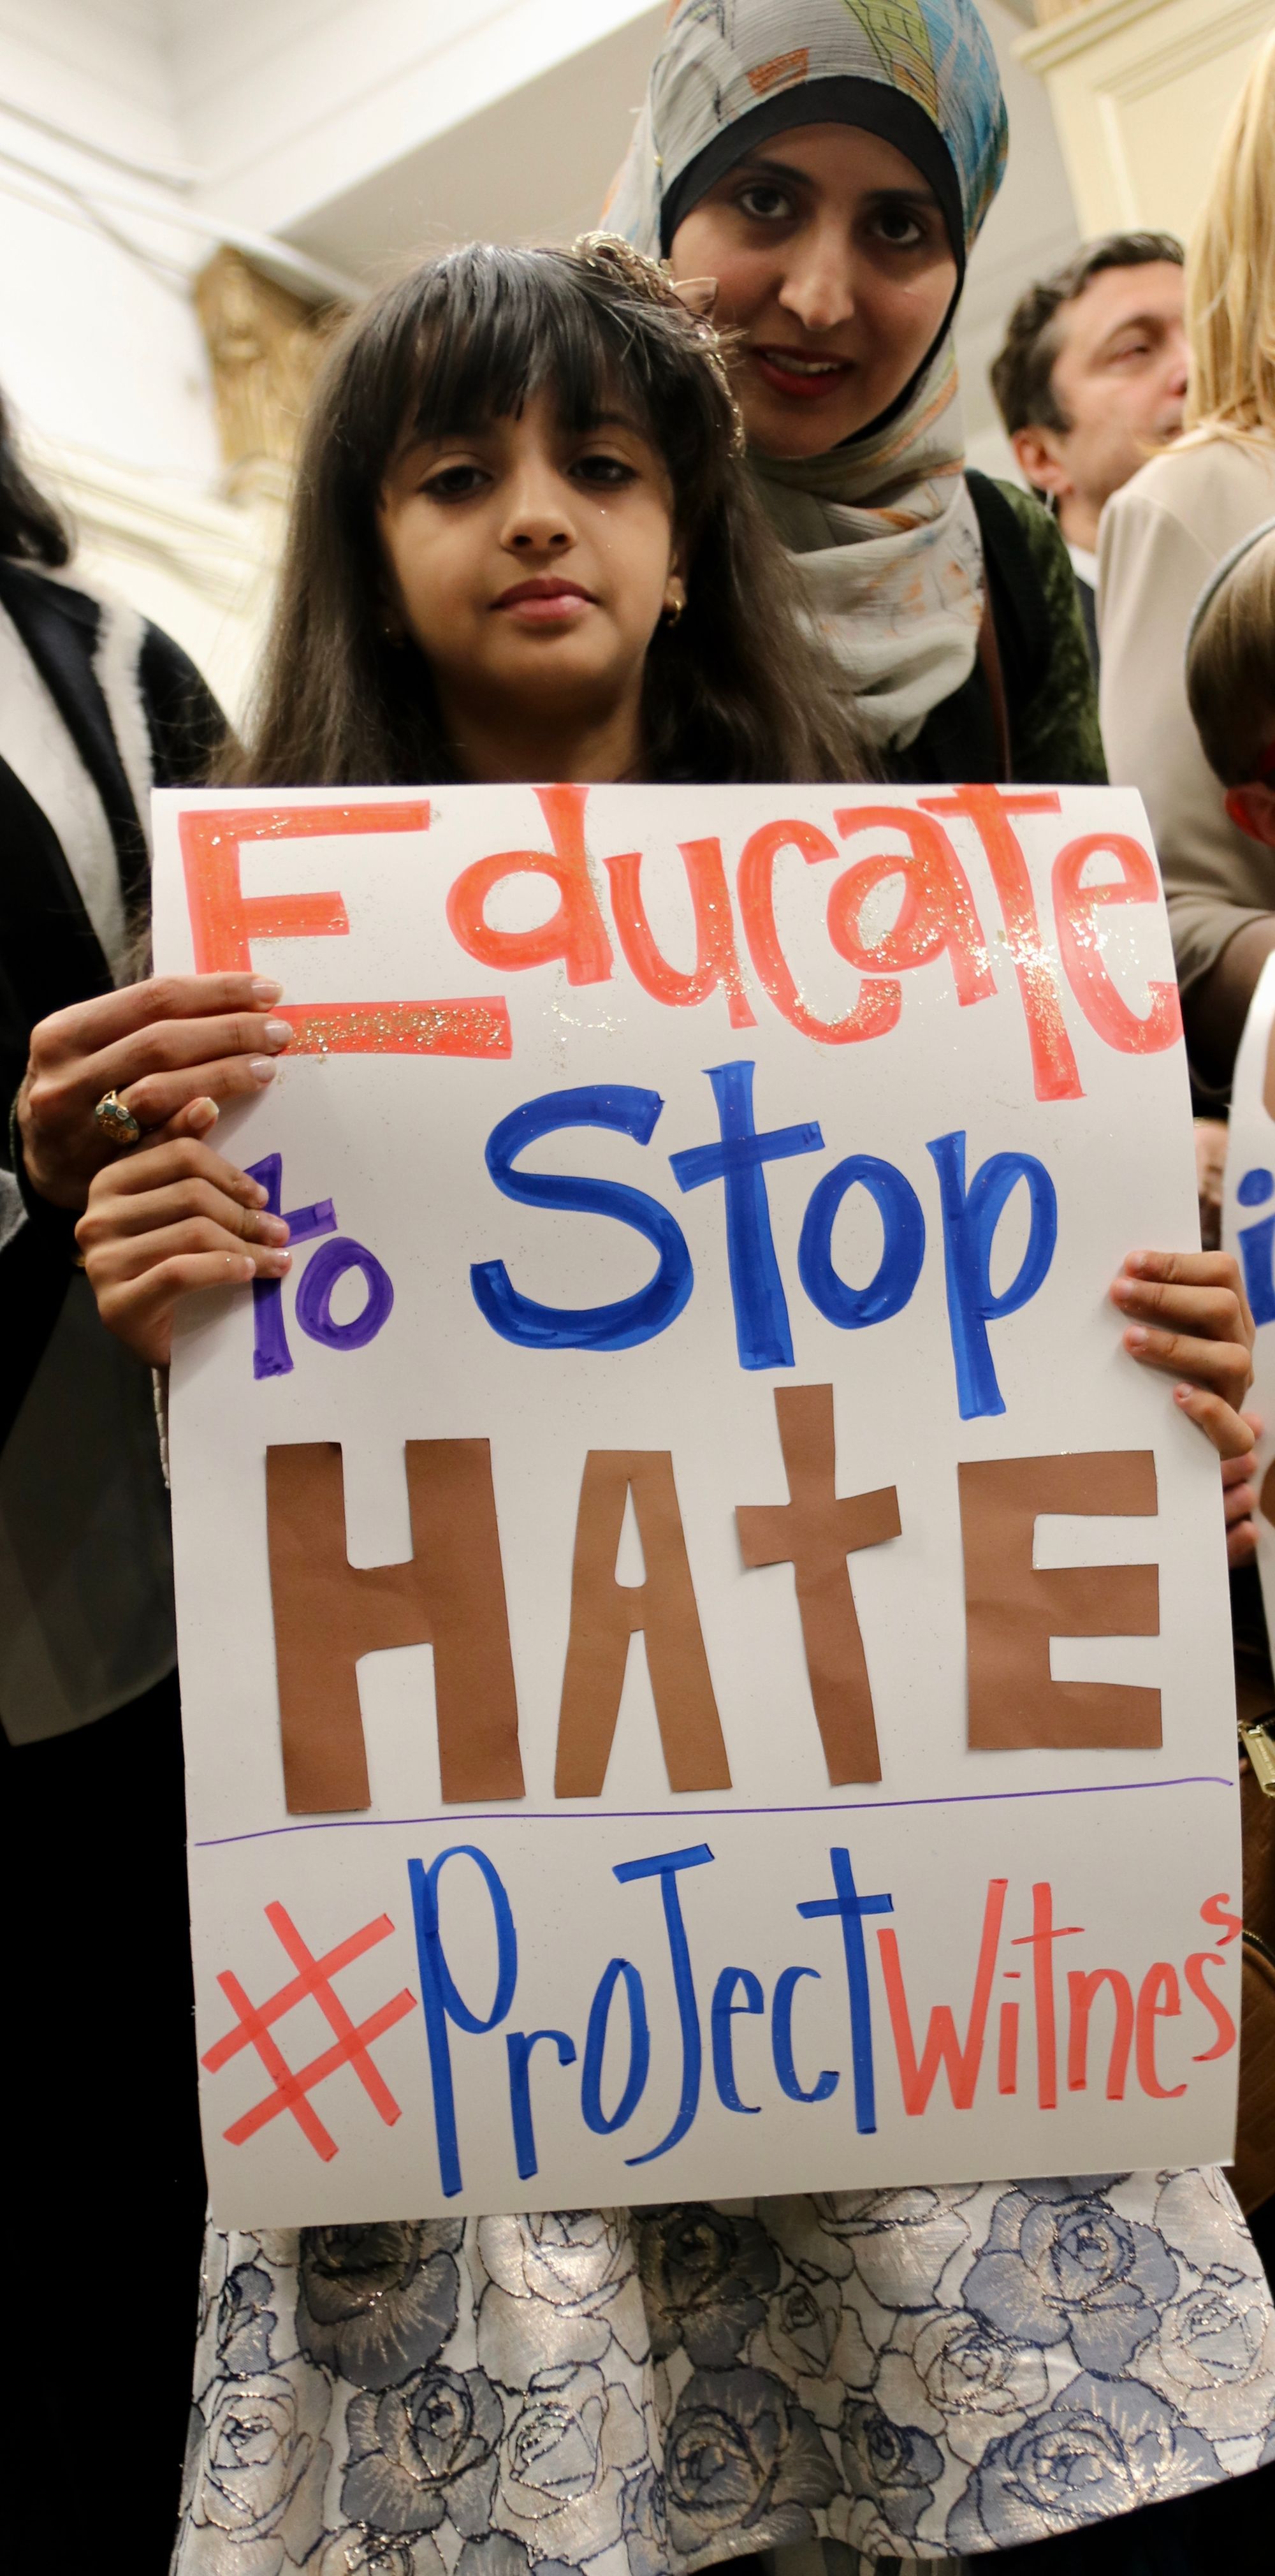 Educate
to Stop
HAtE
#ProJectWitness